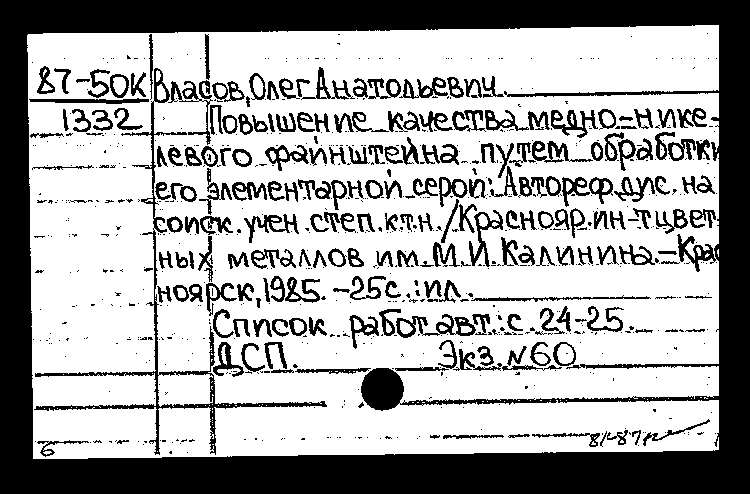 87-50К Власов, Олег Анатольевич.
1332 Повышение качества медно-нике-
левого файнштейна путем обработки
его элементарной серой: Автореф. дис. на
соиск. учен. степ. к.т.н. /Краснояр. ин-т цвет-
ных металлов им. М.И. Калинина. - Крас
ноярск, 1985. - 25с. : ил.
Список работ авт.: с. 24-25.
ДСП. Экз. N60
6